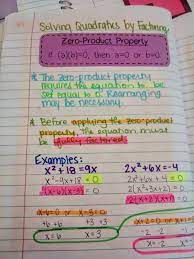 Solving Quadratics by Factoring
Zero-Product Property
If (a)(b)=0, then a=0 or b=0
The zero-product property
requires the equation to be
set equal to 0. Rearranging
may be necessary.
Before applying the zero product
property, the equation must
be fully factored!
Examples:
x²+18=9x 2x²+6x=-4
x²-9x+18=0 2x²+6x+4=0
(x-6)(x-3)=0 2(x²+3x+2)=0
2(x+2)(x+1)=0
x-6=0 or x-3=0
+6 +6 +3 +3 x+2=0 or
x=6 x=3 -2 -2
x=-2